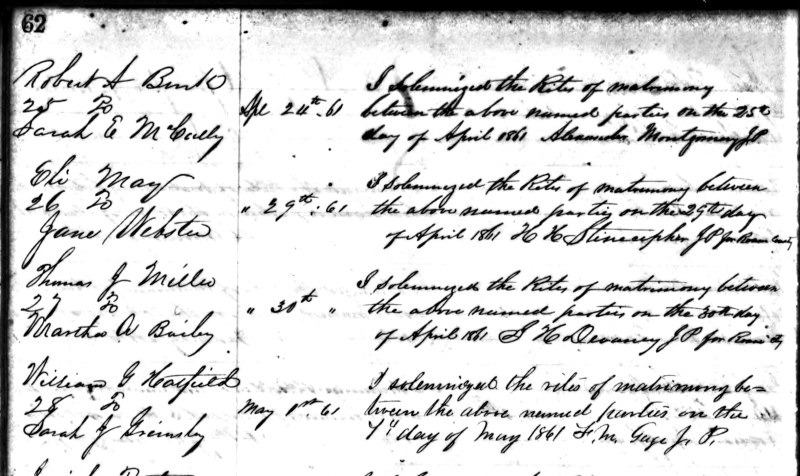 62
Robert A
25 To
Sarah E McCally
Apl 24th .61
I Solemnized the Rites of matrimony
between the above named parties on the 25th
day of April 1861 Alexander Montgomery J.P.
Eli May
26 To
Jane Webster
" 29th .61
I Solemnized the Rites of matrimony between
the above named parties on the 29th day
of April 1861 H H Stinecipher J P for Roane County
Thomas J Miller
27 To
Martha A Bailey
" 30th "
I Solemnized the Rites of matrimony between
the above named parties on the 30th day
of April 1861 H Devaney J P for Roane Cty
William G Hatfield
28 To
Sarah J Grimsby
May 61
I solemnized the rites of matrimony be=
tween the above named parties on the
day of May 1861 Gage J. P.